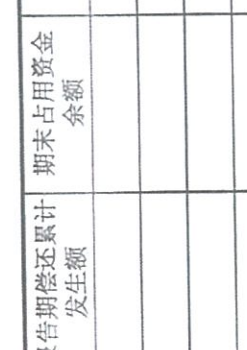 告期偿还累计
发生额
期末占用资金
余额